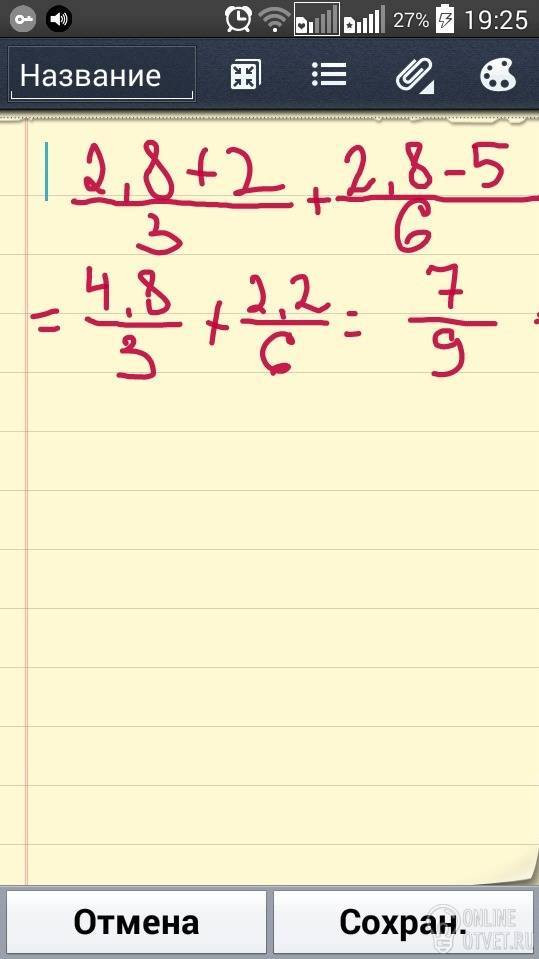 27% 19:25
Название
2,8+2/3 + 2,8-5/6
= 4,8/3 + 2,2/6 = 7/9
Отмена Сохран.
ONLINE
OTVET.RU